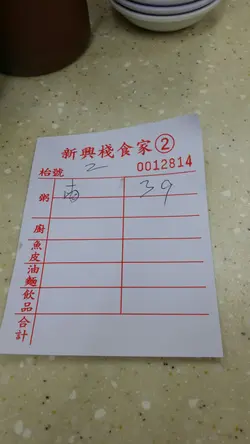 新興棧食家②
枱號 2 0012814
粥 39
廚
魚皮
油麵
飲品
合計